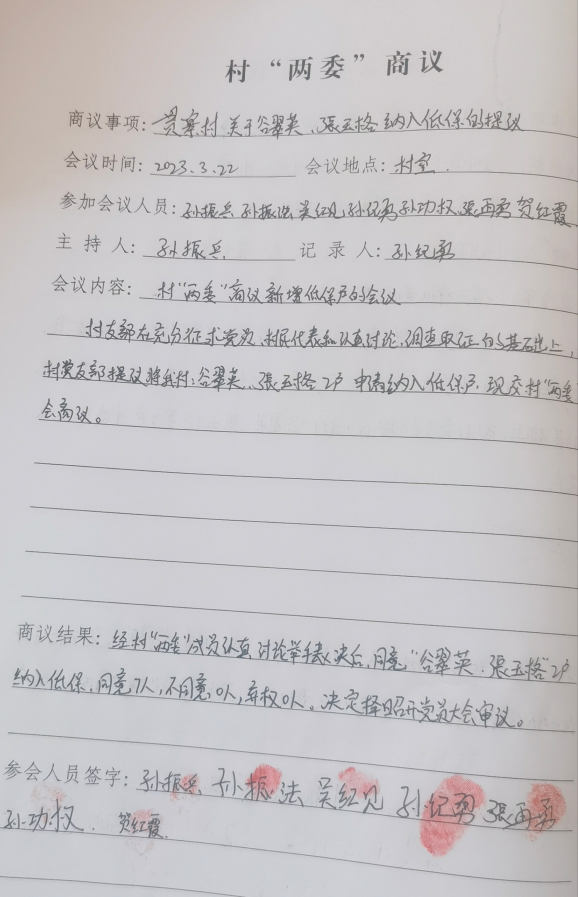 村“两委”商议
商议事项：贯寨村关于谷翠英、張玉格纳入低保的提议
会议时间：2023.3.22 会议地点：村室.
参加会议人员：孙振兵 孙振法 吴红见 孙纪勇 孙功权、張西勇 贺红霞
主持人：孙振兵 记录人：孙纪勇
会议内容：村“两委”商议新增低保户的会议
村支部在充分征求党员、村民代表和认真讨论、调查取证的基础上，
村党支部提议将我村：谷翠英、張玉格2户申请纳入低保户，现交村“两委”
会商议。
商议结果：经村“两委”成员认真讨论举手表决后，同意“谷翠英、張玉格”2户
纳入低保，同意7人，不同意0人，弃权0人。决定择日召开党员大会审议。
参会人员签字：孙振兵 孙振法 吴红见 孙纪勇 張西勇
孙功权、贺红霞